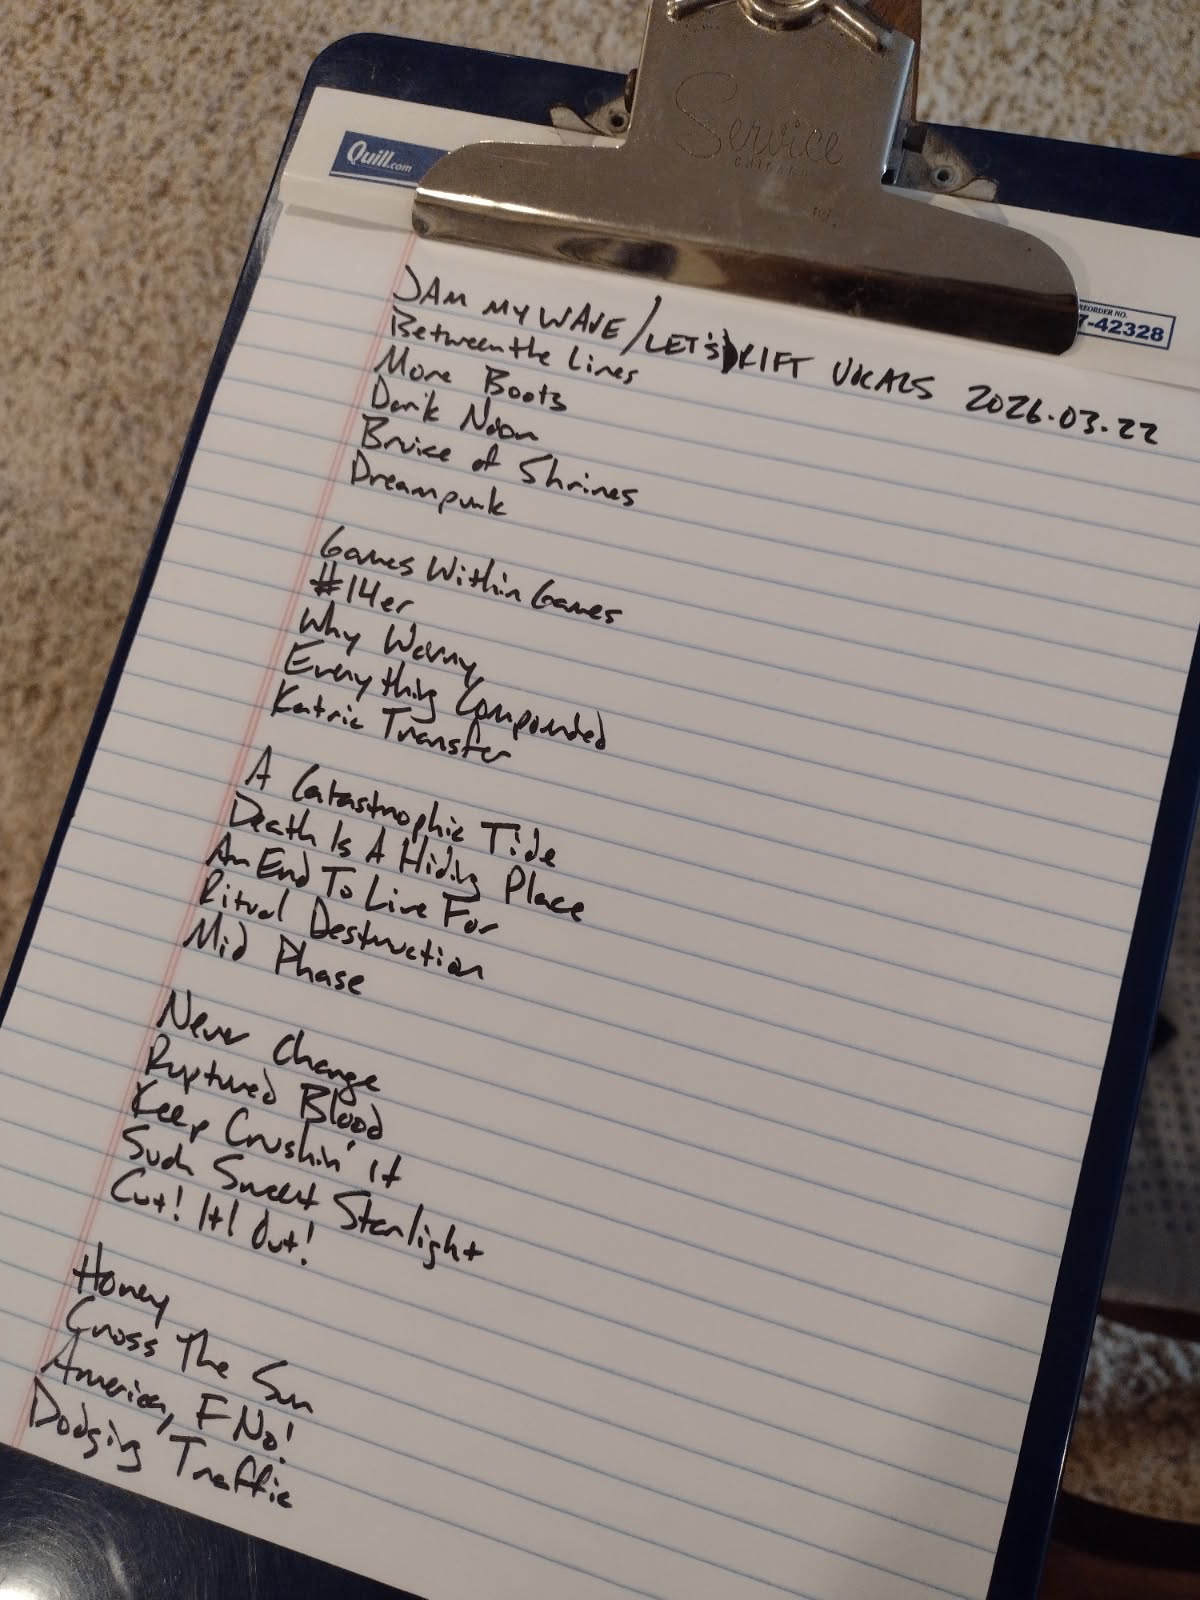 Quill.com
Service
CHICAGO
REORDER NO.
7-42328
JAM MY WAVE/LET'S DRIFT VOCALS 2026.03.22
Between the Lines
More Boots
Dark Noon
Bruise of Shrines
Dreampunk
Games Within Games
#14er
Why Worry
Everything Compounded
Katric Transfer
A Catastrophic Tide
Death Is A Hiding Place
An End To Live For
Ritual Destruction
Mid Phase
Never Change
Ruptured Blood
Keep Crushin' it
Such Sweet Starlight
Cut! It! Out!
Honey
Cross The Sun
America, F No!
Dodging Traffic